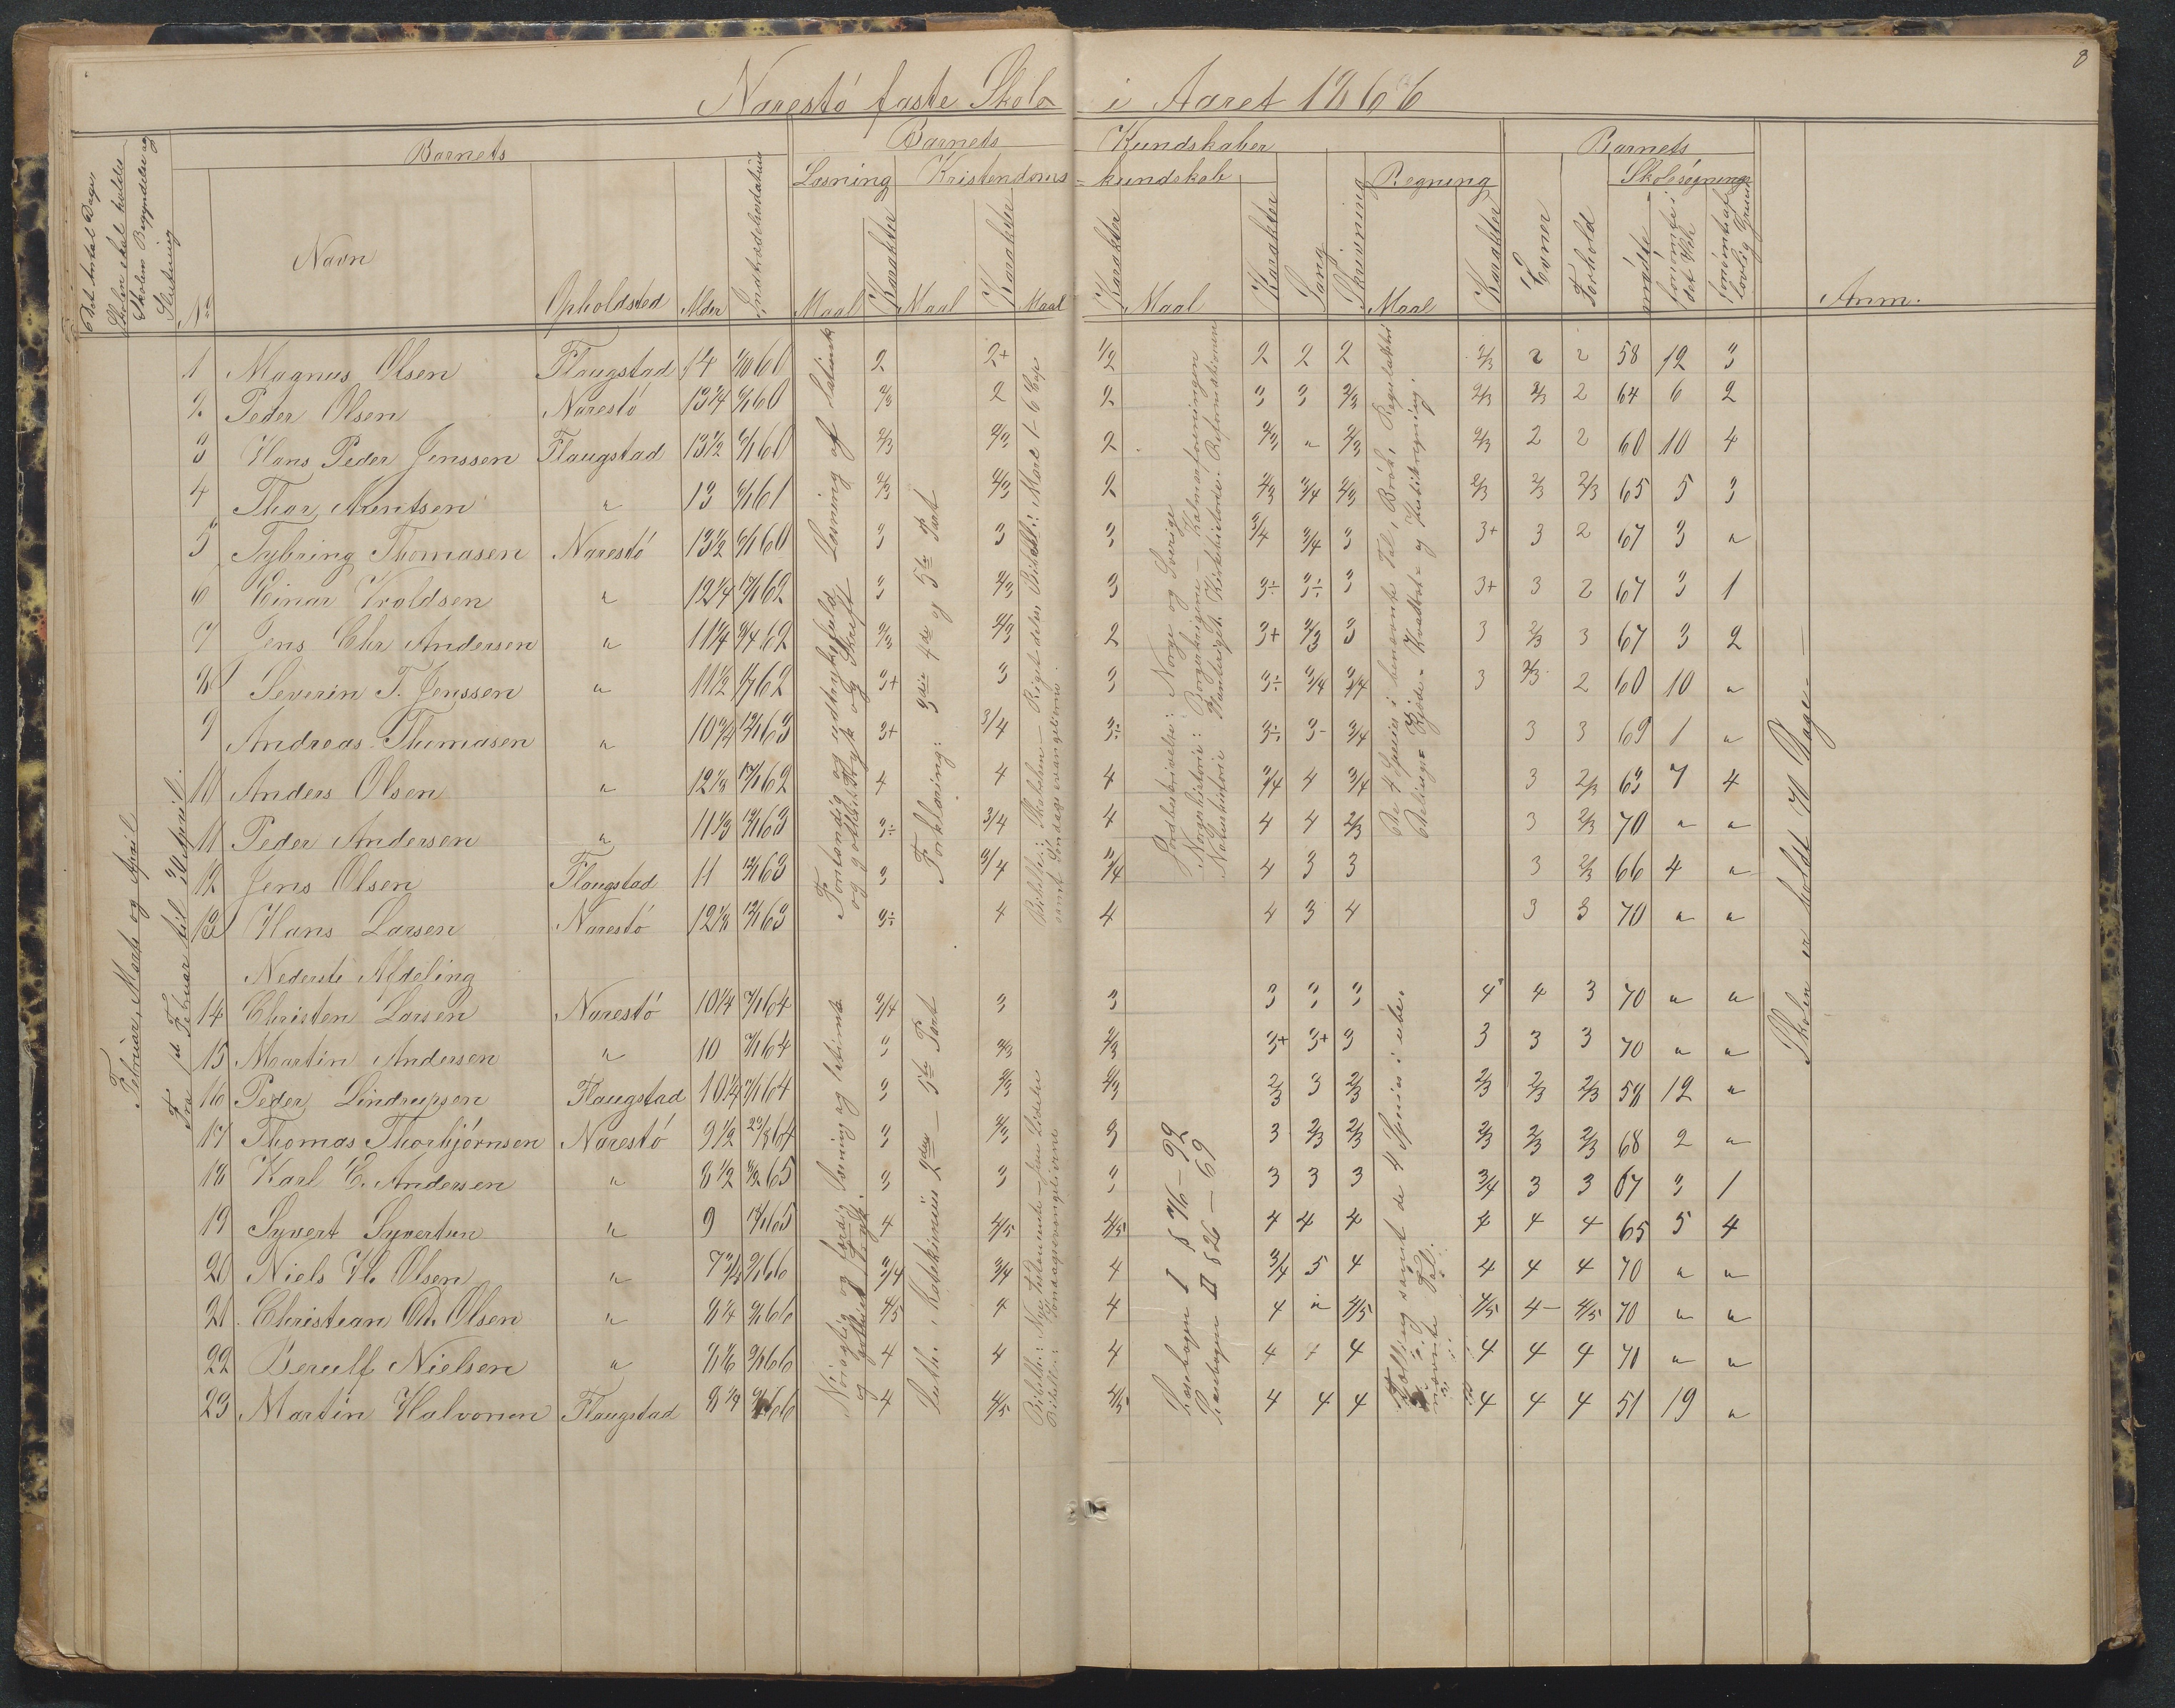 8
Narestö faste Skole i Aaret 1866
Barnets
Barnets Kundskaber
Barnets
Læsning Kristendoms=kundskab Regning Skolesøgning
Det Antal Dage Skolen skal holdes Skolens Begyndelse og Slutning
No Navn Opholdsted Alder Indtrædelsesdatum Maal Karakter Maal Karakter Maal Karakter Maal Karakter Sang Skrivning Maal Karakter Evner Forhold mødte forsömte i det Hele forsömt af lovlig Grund Anm.
Februar, Marts og April
Fra 1ste Februar til 30 April.
1 Magnus Olsen Flaugstad 14 60 2 2+ 1/2 2 2 2 2/3 2 2 58 12 3
2 Peder Olsen Narestö 13 1/4 60 2/3 2 2 3 3 2/3 2/3 2/3 2 64 6 2
3 Hans Peder Jenssen Flaugstad 13 1/2 60 2/3 2/3 2 2/3 " 2/3 2/3 2 2 60 10 4
4 Thor Arentsen " 13 61 2/3 2/3 2 2/3 3/4 2/3 2/3 2/3 2/3 65 5 3
5 Tybring Thomasen Narestö 13 1/2 60 3 3 3 3/4 3/4 3 3+ 3 2 67 3 "
6 Einar Vroldsen " 12 1/4 62 3 2/3 3 3÷ 3÷ 3 3+ 3 2 67 3 1
7 Jens Chr Andersen " 11 1/4 62 2/3 2/3 2 3+ 2/3 3 3 2/3 3 67 3 2
8 Severin T. Jenssen " 11 1/2 62 3+ 3 3 3÷ 3/4 3/4 3 2/3 2 60 10 "
9 Andreas Thomasen " 10 3/4 63 3+ 3/4 3÷ 3÷ 3- 3/4 3 3 69 1 "
10 Anders Olsen " 12 1/3 62 4 4 4 3/4 4 3/4 3 2/3 63 7 4
11 Peder Andersen " 11 1/3 63 3÷ 3/4 4 4 4 2/3 3 2/3 70 " "
12 Jens Olsen Flaugstad 11 63 3 3/4 3/4 4 3 3 3 2/3 66 4 "
13 Hans Larsen Narestö 12 1/3 63 3÷ 4 4 4 3 4 3 3 70 " "
Nederste Afdeling
14 Christen Larsen Narestö 10 1/4 64 3/4 3 3 3 3 3 4 4 3 70 " "
15 Martin Andersen " 10 64 3 2/3 2/3 3+ 3+ 3 3 3 3 70 " "
16 Peder Lindrupsen Flaugstad 10 1/4 64 3 2/3 2/3 2/3 3 2/3 2/3 2/3 2/3 58 12 "
17 Thomas Thorbjörnsen Narestö 9 1/2 64 3 2/3 3 3 2/3 2/3 2/3 2/3 2/3 68 2 "
18 Karl E. Andersen " 8 1/2 65 3 3 3 3 3 3 3/4 3 3 67 3 1
19 Syvert Syvertsen " 9 65 4 4/5 4/5 4 4 4 4 4 4 65 5 4
20 Niels Olsen " 7 3/4 66 3/4 3/4 4 3/4 5 4 4 4 4 70 " "
21 Christian Olsen " 8 1/4 66 4/5 4 4 4 " 4/5 4/5 4- 4/5 70 " "
22 Berulf Nielsen " 66 4 4 4 4 4 4 4 4 4 70 " "
23 Martin Halvorsen Flaugstad 66 4 4/5 4/5 4 4 4 4 4 4 51 19 "
Forstandig og udtryksfuld Læsning af latinsk og gothisk Tryk og Skrift
Forklaring: 3die 4de og 5te Part
Bibelh.: Skabelsen — Rigets deling Bibell.: Mark 1-6 Cap samt Søndagsevangelierne
Jordbeskrivelse: Norge og Sverige
Norgeshistorie: Borgerkrigene — Kalmarforeningen
Naturhistorie Planteriget. Kirkehistorie: Reformationen
De 4 Species i benævnte Tal, Brök, Regulade tri
Nöiagtig og færdig Læsning af latinsk og gothisk Tryk.
Luth. Katekismus 2den — 5te Part
Læsebogen I § 76 — 92
Læsebogen II § 26 — 69
Skolen er holdt 70 Dage —